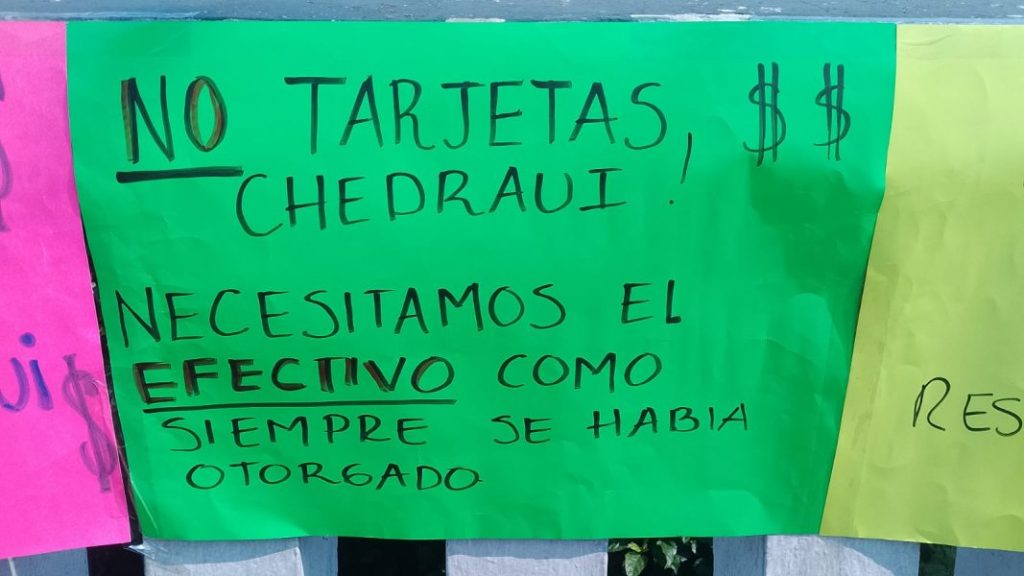 NO TARJETAS, $$
CHEDRAUI !
NECESITAMOS EL
EFECTIVO COMO
SIEMPRE SE HABIA
OTORGADO
ui $
RES